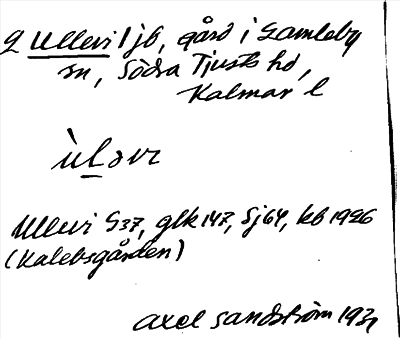 2 Ullevi 1 jb, gård i Gamleby
sn, Södra Tjusts hd,
Kalmar l
ùləvi
Ullevi G37, glk 147, Sj 64, kb 1926
(Kalebsgården)
Axel Sandström 1931